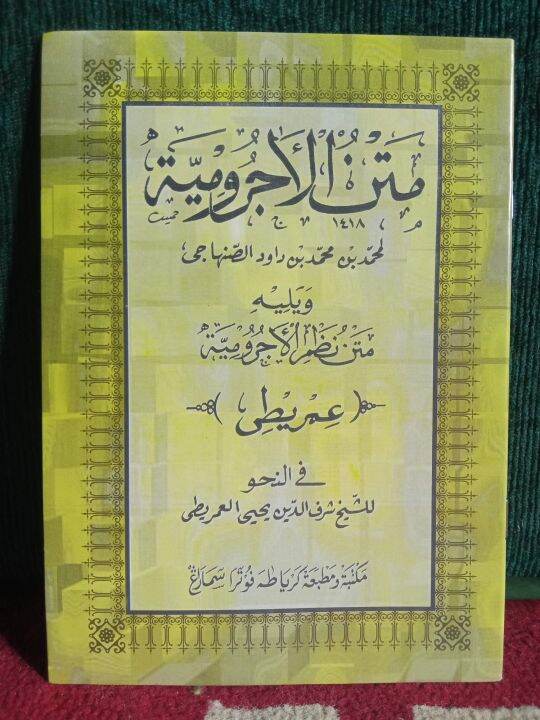 متن الأجرومية
١٤١٨
لمحمّد بن محمّد بن داود الصّنهاجى
ويليه
متن نظم الأجرومية
(عمريطى)
فى النحو
للشيخ شرف الدّين يحيى العمريطى
مكتبة ومطبعة كرياطه فوترا سمارڠ